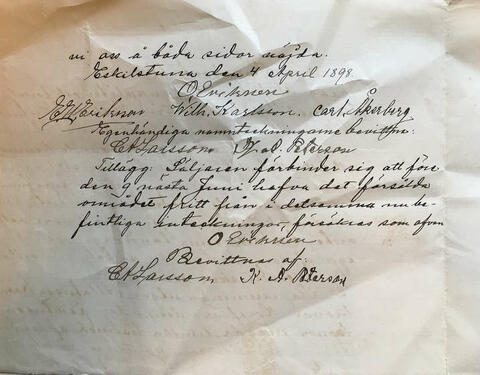 vi oss å båda sidor nöjda.
Eskilstuna den 4 April 1898.
O Ericksen
E W Erikson Wilh. Karlsson. Carl Åkerberg
Egenhändiga namnteckningarne bevittna:
C A Larsson K. A. Peterson
Tillägg: Säljaren förbinder sig att före
den 9 nästa Juni hafva det försålda
området fritt från i detsamma nu be-
fintliga inteckningar, försäkras som ofvan
O Ericksen
Bevittnas af:
C A Larsson K. A. Peterson